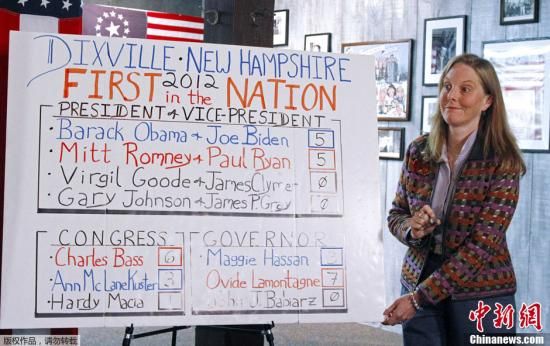 DIXVILLE · NEW HAMPSHIRE
FIRST 2012 in the NATION
PRESIDENT & VICE-PRESIDENT
· Barack Obama & Joe Biden 5
· Mitt Romney & Paul Ryan 5
· Virgil Goode & James Clymer 0
· Gary Johnson & James P. Gray 0
CONGRESS
· Charles Bass 6
· Ann McLane Kuster 3
· Hardy Macia 1
GOVERNOR
· Maggie Hassan 3
· Ovide Lamontagne 7
· John J. Babiarz 0
©REUTERS
版权作品,请勿转载
中新网
Chinanews.com